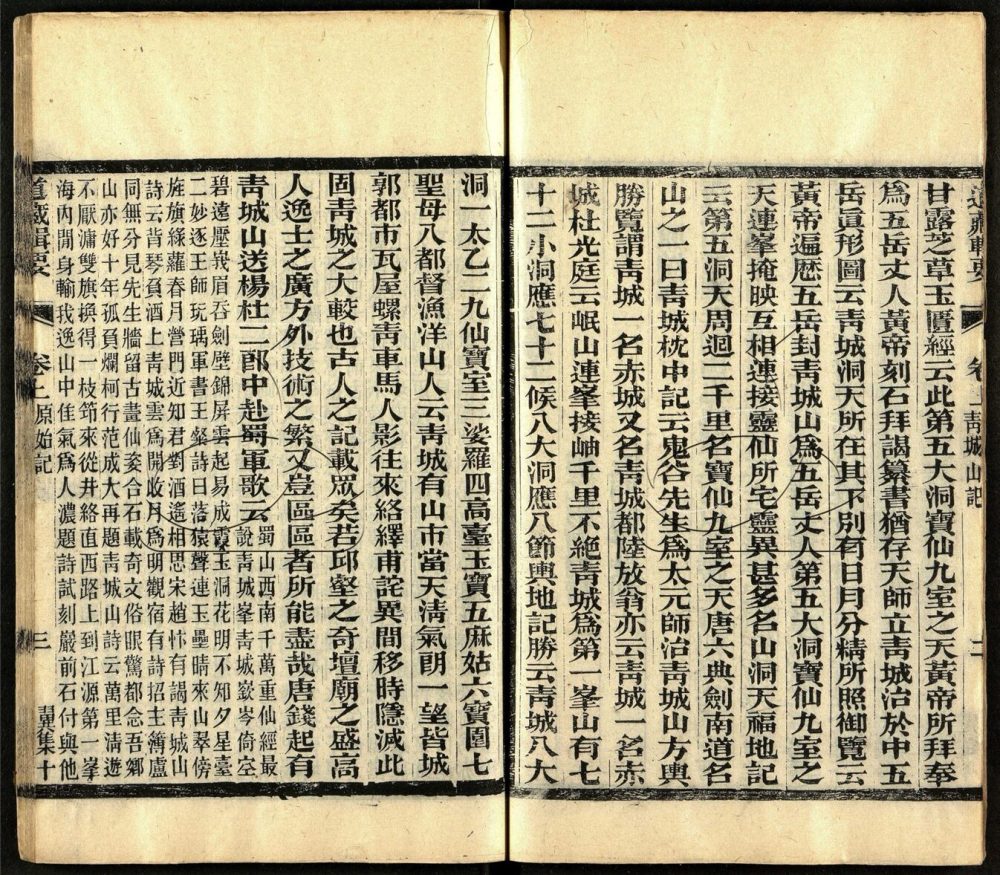 道藏輯要 卷上青城山記 二
甘露芝草玉匱經云此第五大洞寶仙九室之天黃帝所拜奉
為五岳丈人黃帝刻石拜謁纂書猶存天師立靑城治於中五
岳眞形圖云靑城洞天所在其下別有日月分精所照御覽云
黃帝遍歷五岳封靑城山爲五岳丈人第五大洞寶仙九室之
天連峯掩映互相連接靈仙所宅靈異甚多名山洞天福地記
云第五洞天周迴二千里名寶仙九室之天唐六典劍南道名
山之一曰靑城枕中記云鬼谷先生爲太元師治靑城山方輿
勝覽謂靑城一名赤城又名靑城都陸放翁亦云靑城一名赤
城杜光庭云岷山連峯接岫千里不絕靑城爲第一峯山有七
十二小洞應七十二候八大洞應八節輿地記勝云靑城八大
洞一太乙二九仙寶室三娑羅四高臺玉寶五麻姑六寶圍七
聖母八都督漁洋山人云靑城有山市當天淸氣朗一望皆城
郭都市瓦屋螺靑車馬人影往來絡繹甫詫異間移時隱滅此
固靑城之大較也古人之記載眾矣若邱壑之奇壇廟之盛高
人逸士之廣方外技術之繁又豈區區者所能盡哉唐錢起有
靑城山送楊杜二郎中赴蜀軍歌云蜀山西南千萬重仙經最
說靑城峯靑城嶔岑倚空
碧遠壓峩眉吞劍壁錦屏雲起易成霞玉洞花明不知夕星臺
二妙逐王師玩瑀軍書王粲詩日落猿聲連玉壘晴來山翠傍
旌旗綠蘿春月營門近知君對酒遙相思宋趙忭有謁靑城山
詩云背琴負酒上靑城雲爲開收月爲明觀宿有詩招主簿廬
同無分見先生牆留古畫仙姿合石載奇文俗眼驚都念吾鄉
山亦好十年孤負爛柯行范成大再題靑城山詩云萬里淸遊
不厭慵雙旗換得一枝筇來從井絡直西路上到江源第一峯
海內閒身輸我逸山中佳氣爲人濃題詩試刻巖前石付與他
道藏輯要 卷上原始記 三 翼集十